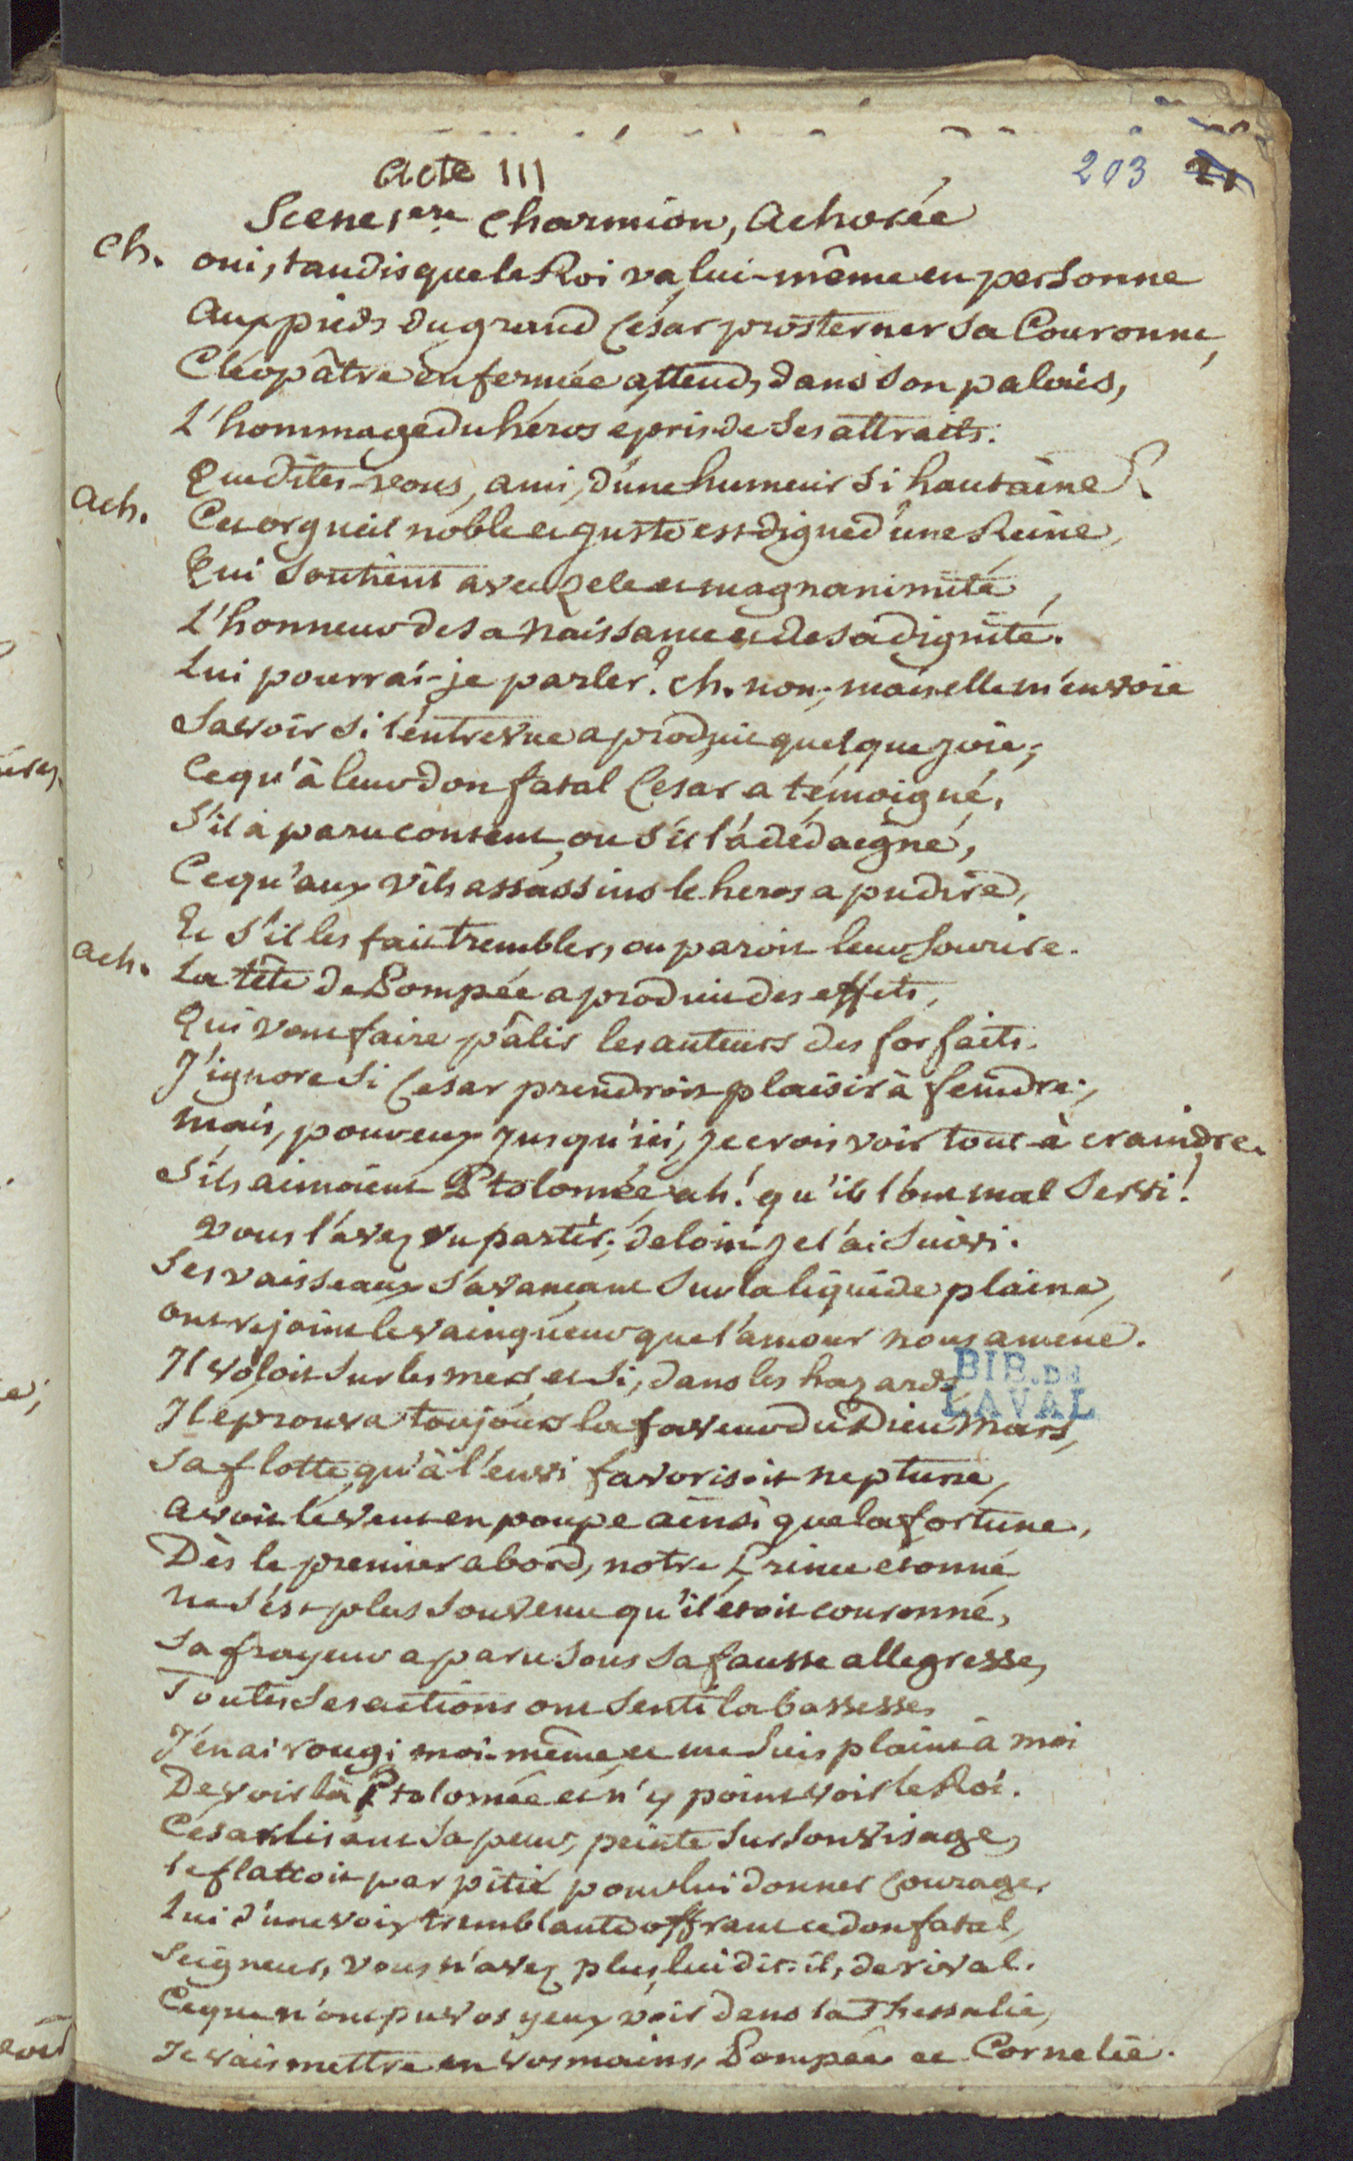 203 21
Acte III
Scene 1ere Charmion, Achorée
Ch. oui, tandis que le Roi va lui-même en personne
Aux pieds du grand César prosterner sa Couronne,
Cléopâtre enfermée attend, dans son palais,
L'hommage du héros épris de ses attraits.
Que dites-vous, ami, d'une humeur si hautaine?
Ach. Cet orgueil noble et juste est digne d'une Reine,
Qui soutient avec zele et magnanimité,
L'honneur de sa naissance et de sa dignité.
Lui pourrai-je parler? ch. non; mais elle m'envoie
Savoir si l'entrevue a produit quelque joie;
Ce qu'à leur don fatal Cesar a témoigné,
S'il a paru content, ou s'il l'a dédaigné,
Ce qu'aux vils assassins le heros a pu dire,
Et s'il les fait trembler, ou paroit leur sourire.
Ach. La tête de Pompée a produit des effets,
Qui vont faire pâlir les auteurs des forfaits.
J'ignore si Cesar prendroit plaisir à feindre;
mais, pour eux jusqu'ici, je crois voir tout à craindre.
S'ils aimoient Ptolomée, ah! qu'ils l'ont mal servi!
vous l'avez vu partir; de loin je l'ai suivi.
Ses vaisseaux s'avançant sur la liquide plaine,
ont rejoint le vainqueur que l'amour nous amene.
Il voloit sur les mers, et si, dans les hazards,
BIB. DE
LAVAL
Il éprouva toujours la faveur du Dieu Mars,
Sa flotte, qu'à l'envi favorisoit neptune,
avoit le vent en poupe ainsi que la fortune.
Dès le premier abord, notre Prince etonné
Ne s'est plus souvenu qu'il étoit couronné,
Sa frayeur a paru sous sa fausse allegresse,
Toutes ses actions ont senti la bassesse,
J'en ai rougi moi-même et me suis plaint à moi
De voir là Ptolomée et n'y point voir le Roi.
César lisant sa peur, peinte sur son visage,
le flattoit par pitié pour lui donner courage.
Lui d'une voix tremblante offrant ce don fatal,
Seigneur, vous n'avez plus, lui dit-il, de rival.
Ce que n'ont pu vos yeux voir dans la Thessalie,
Je vais mettre en vos mains, Pompée et Cornelie.